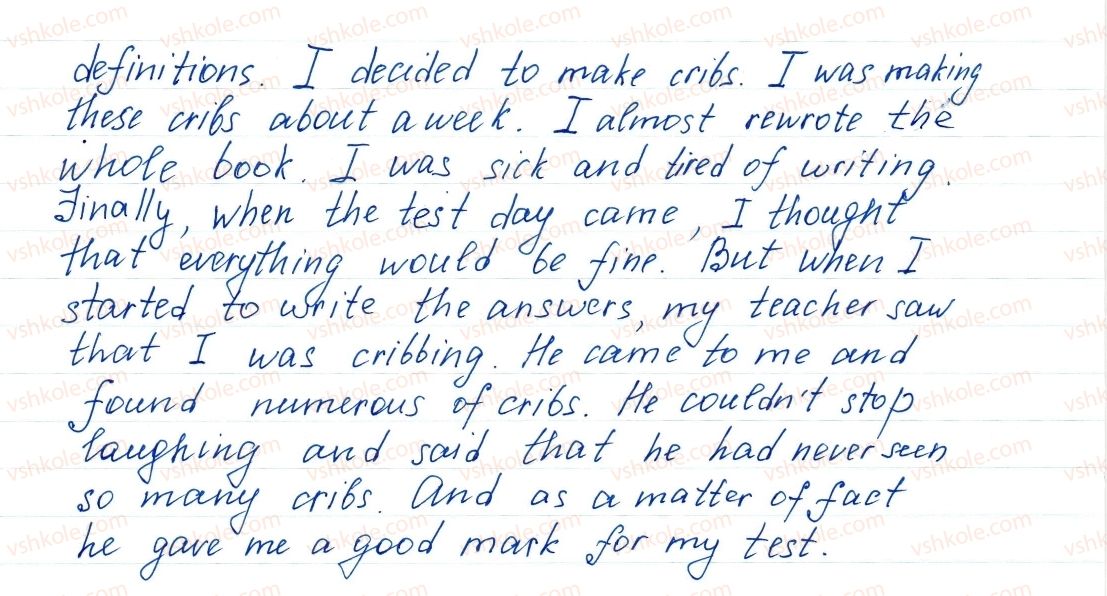 definitions. I decided to make cribs. I was making
these cribs about a week. I almost rewrote the
whole book. I was sick and tired of writing.
Finally, when the test day came, I thought
that everything would be fine. But when I
started to write the answers, my teacher saw
that I was cribbing. He came to me and
found numerous of cribs. He couldn't stop
laughing and said that he had never seen
so many cribs. And as a matter of fact
he gave me a good mark for my test.